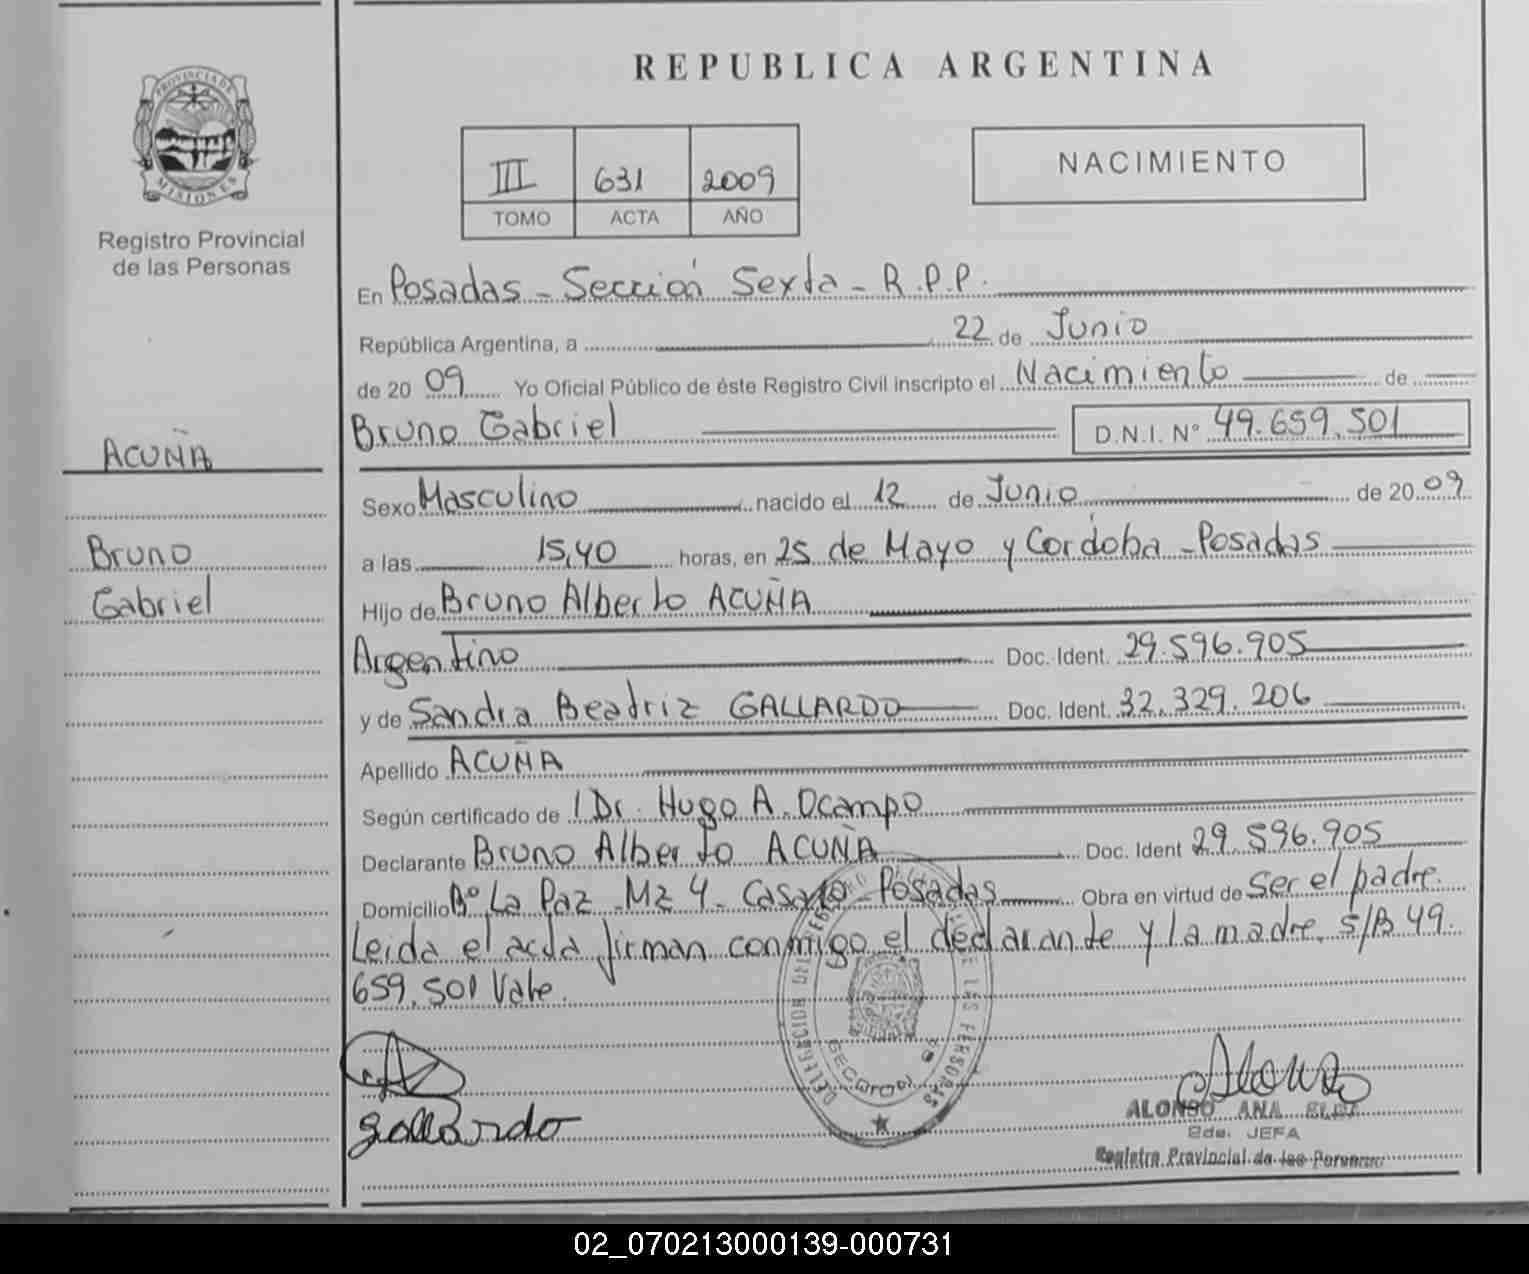 PROVINCIA DE
MISIONES
Registro Provincial
de las Personas
ACUÑA
Bruno
Gabriel
REPUBLICA ARGENTINA
III 631 2009
TOMO ACTA AÑO
NACIMIENTO
En Posadas - Sección Sexta - R.P.P.
República Argentina, a 22 de Junio
de 2009 Yo Oficial Público de éste Registro Civil inscripto el Nacimiento de
Bruno Gabriel D.N.I. N° 49.659.501
Sexo Masculino nacido el 12 de Junio de 2009
a las 15,40 horas, en 25 de Mayo y Cordoba - Posadas
Hijo de Bruno Alberto ACUÑA
Argentino Doc. Ident. 29.596.905
y de Sandra Beatriz GALLARDO Doc. Ident. 32.329.206
Apellido ACUÑA
Según certificado de Dr. Hugo A. Ocampo
Declarante Bruno Alberto ACUÑA Doc. Ident 29.596.905
Domicilio B° La Paz - Mz 4 - Posadas Obra en virtud de ser el padre.
Leida el acta firman conmigo el declarante y la madre. S/B 49.
659.501 Vale.
DE LAS PERSONAS
Gallardo
Alonso
ALONSO ANA ELDA
2da. JEFA
Registro Provincial de las Personas
02_070213000139-000731